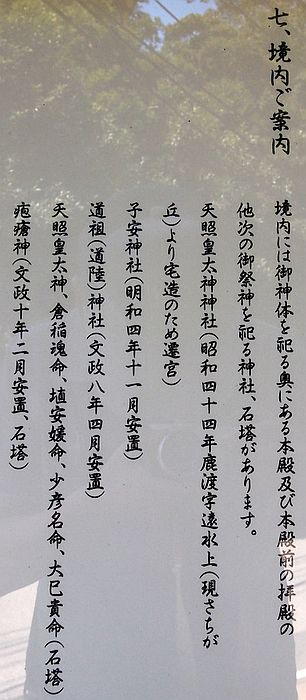 七、境内ご案内
境内には御神体を祀る奥にある本殿及び本殿前の拝殿の
他次の御祭神を祀る神社、石塔があります。
天照皇太神神社(昭和四十四年鹿渡字遠水上(現さちが
丘)より宅造のため遷宮)
子安神社(明和四年十一月安置)
道祖(道陸)神社(文政八年四月安置)
天照皇太神、倉稲魂命、埴安媛命、少彦名命、大巳貴命(石塔)
疱瘡神(文政十年二月安置、石塔)